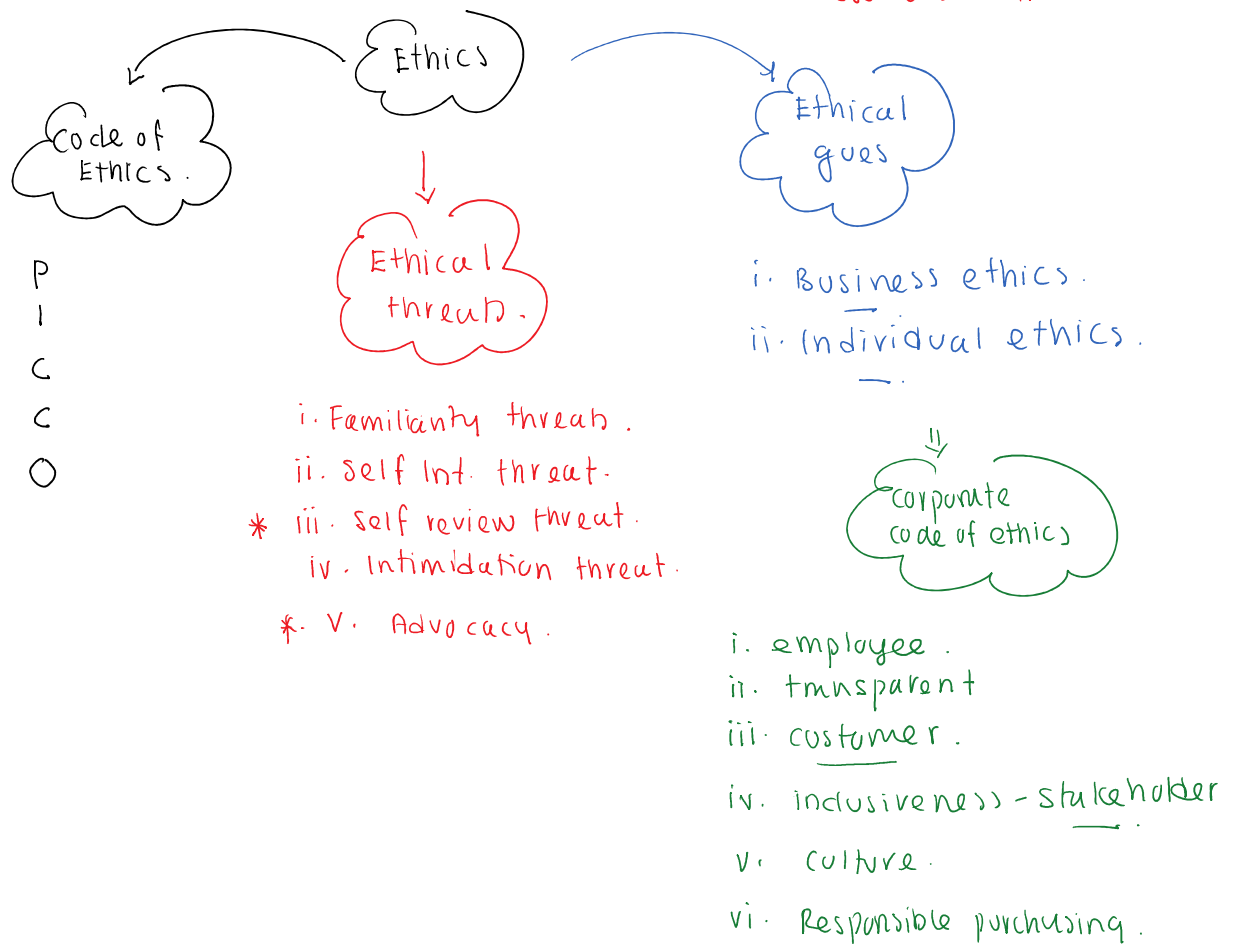 Ethics
Code of
Ethics.
P
I
C
C
O
Ethical
threats.
i. Familiarity threats.
ii. Self Int. threat.
* iii. Self review threat.
iv. Intimidation threat.
*. v. Advocacy.
Ethical
gues
i. Business ethics.
ii. Individual ethics.
corporate
code of ethics
i. employee.
ii. transparent
iii. customer.
iv. inclusiveness - stakeholder
v. culture.
vi. Responsible purchasing.